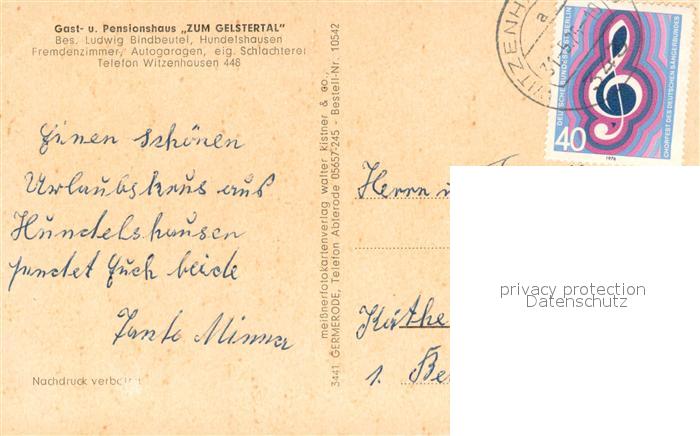 Gast- u. Pensionshaus „ZUM GELSTERTAL"
Bes. Ludwig Bindbeutel, Hundelshausen
Fremdenzimmer, Autogaragen, eig. Schlachterei
Telefon Witzenhausen 448
Einen schönen
Urlaubskrus aus
Hundelshausen
sendet Euch beide
Tante Minna
Nachdruck verboten
meißnerfotokartenverlag walter kistner & co.,
3441 GERMERODE, Telefon Abterode 05657-245 - Bestell-Nr. 10542
WITZENH
a
DEUTSCHE BUNDESPOST BERLIN
CHORFEST DES DEUTSCHEN SÄNGERBUNDES
40
1976
Herrn u
Käthe
1. Be
privacy protection
Datenschutz